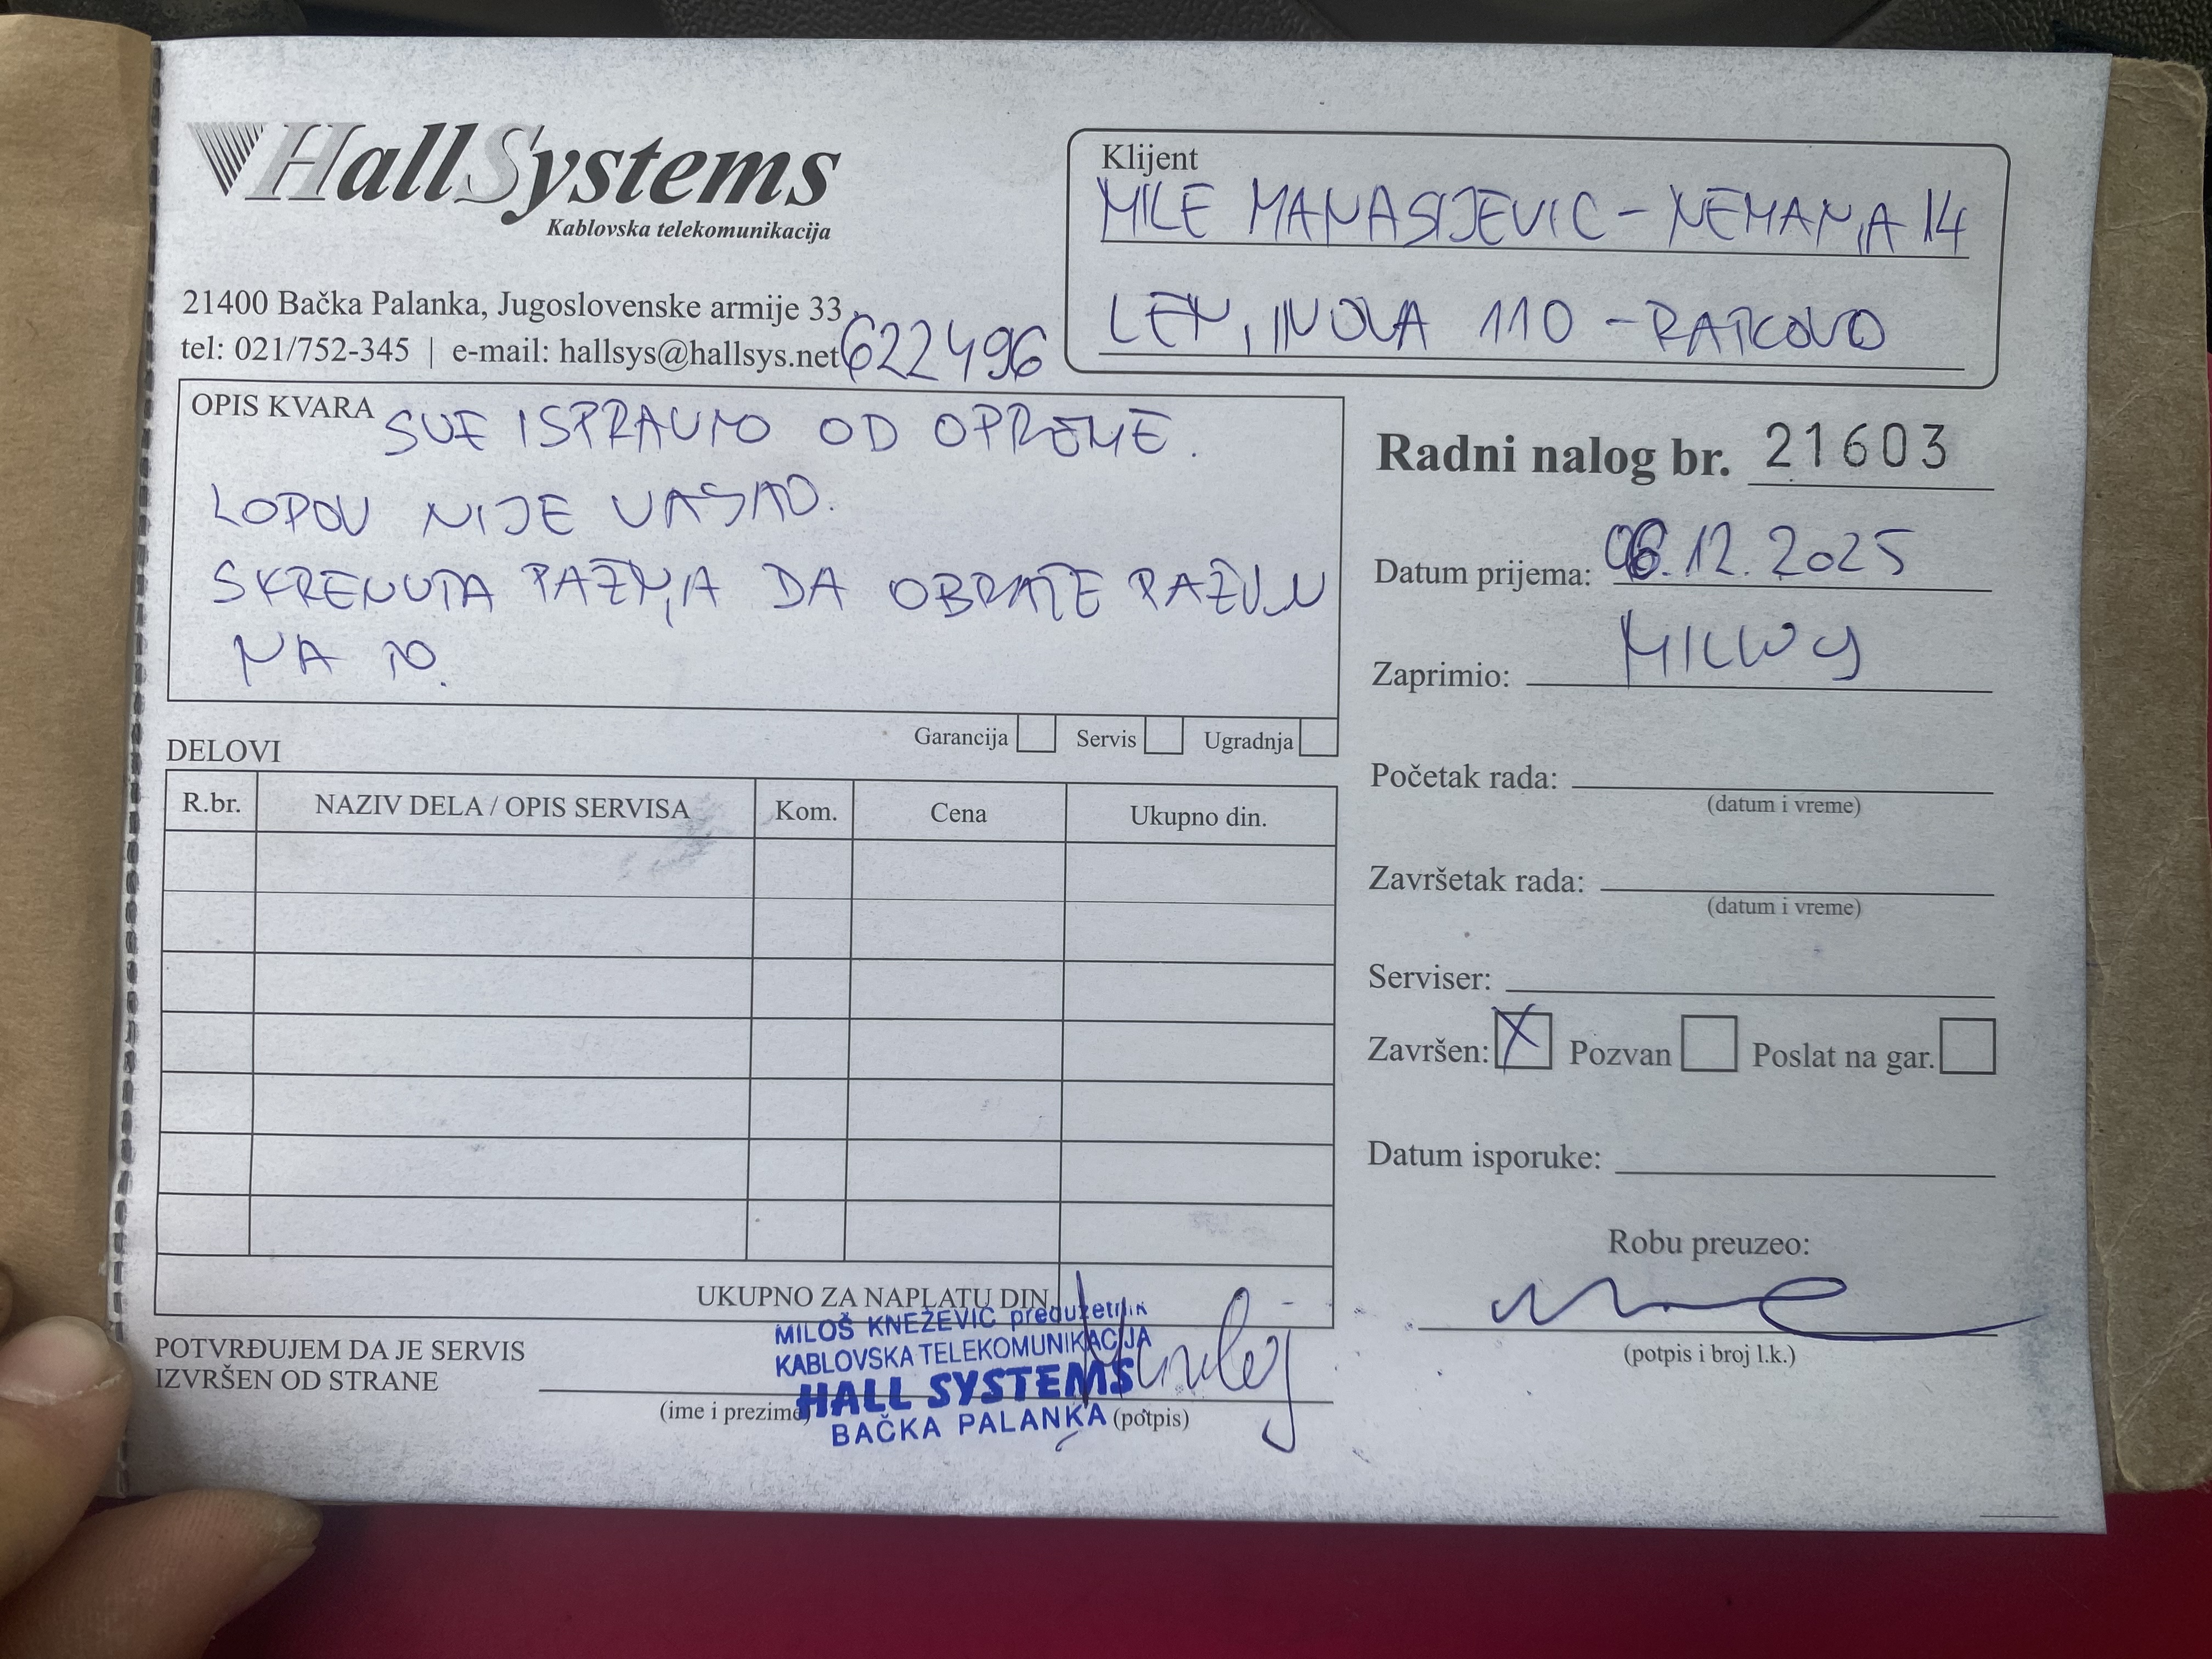 HallSystems
Kablovska telekomunikacija
21400 Bačka Palanka, Jugoslovenske armije 33
tel: 021/752-345 | e-mail: hallsys@hallsys.net
622496
Klijent
MILE MANASIJEVIC - NEMANJA 14
LENJINOVA 110 - RATKOVO
OPIS KVARA
SVE ISPRAVNO OD OPREME.
LOPOV NIJE UASAO.
SKRENUTA PAZNJA DA OBRATE PAZNJU
NA TO.
Garancija Servis Ugradnja
Radni nalog br. 21603
Datum prijema: 06.12.2025
Zaprimio:
Početak rada:
(datum i vreme)
Završetak rada:
(datum i vreme)
Serviser:
Završen: X Pozvan Poslat na gar.
Datum isporuke:
Robu preuzeo:
(potpis i broj l.k.)
DELOVI
R.br. NAZIV DELA / OPIS SERVISA Kom. Cena Ukupno din.
UKUPNO ZA NAPLATU DIN
POTVRĐUJEM DA JE SERVIS
IZVRŠEN OD STRANE
(ime i prezime) (potpis)
MILOŠ KNEŽEVIĆ preduzetnik
KABLOVSKA TELEKOMUNIKACIJA
HALL SYSTEMS
BAČKA PALANKA